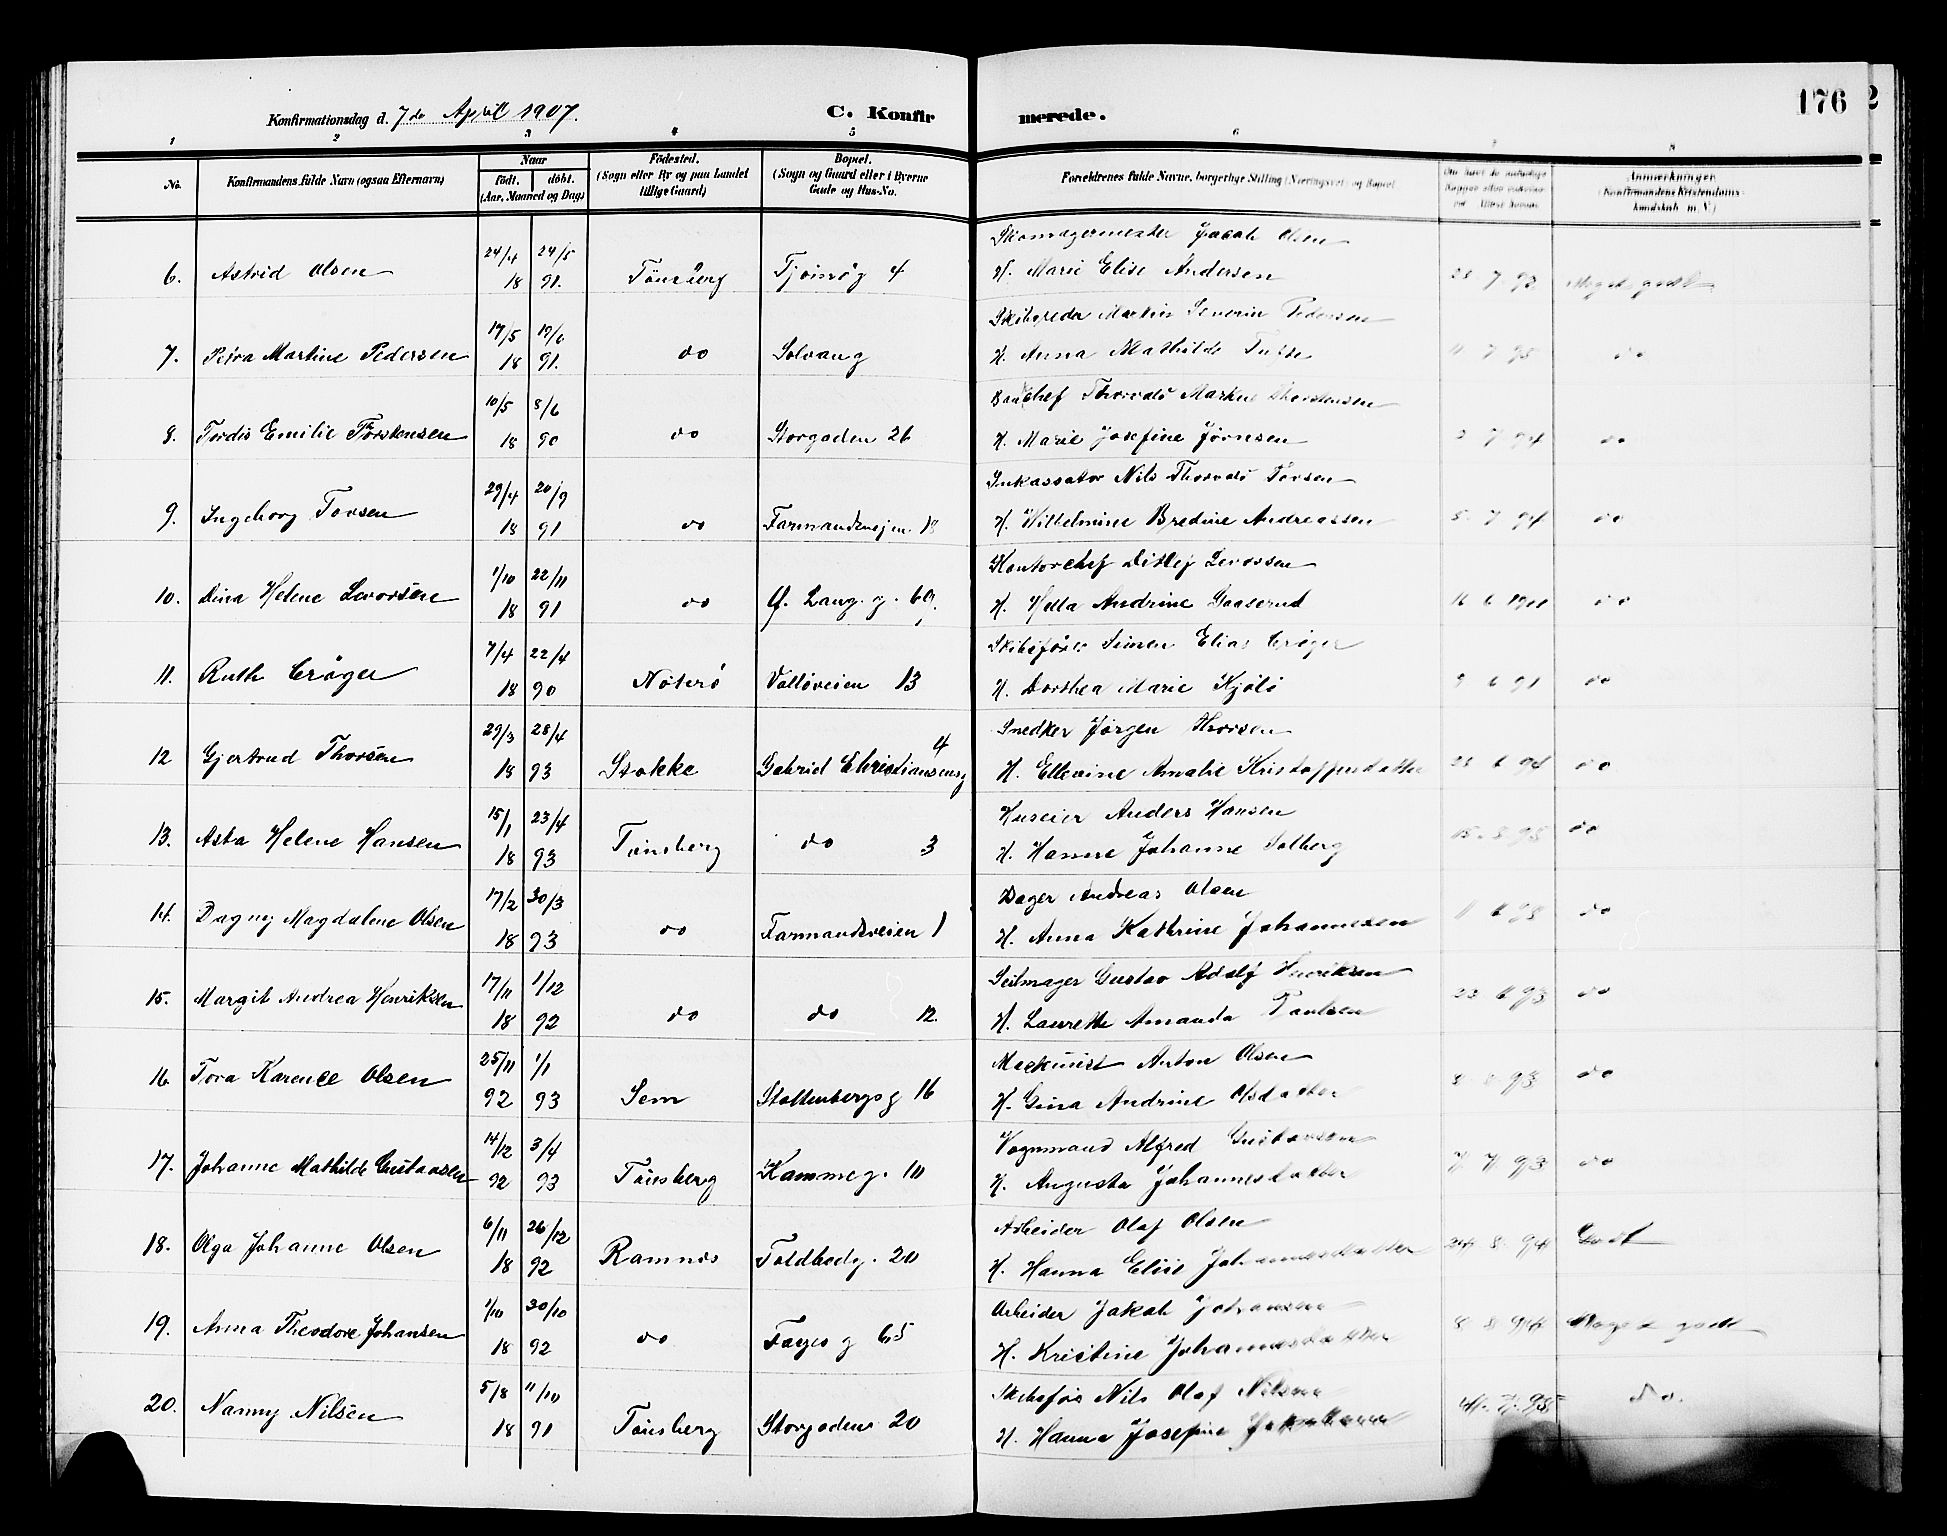 176
Konfirmationsdag d. 7de April 1907.
C. Konfirmerede.
1 2 3 4 5 6 7 8
No.
Konfirmandens fulde Navn (ogsaa Efternavn)
Naar
födt. döbt.
(Aar, Maaned og Dag)
Födested.
(Sogn eller By og paa Landet
tillige Gaard)
Bopæl.
(Sogn og Gaard eller i Byerne
Gade og Hus-No.
Forældrenes fulde Navne, borgerlige Stilling (Næringsvei) og Bopæl
Anmærkninger
(Konfirmandens Kristendoms-
kundskab m. V.)
24/4 24/5 Skomagermester Jacob Olsen
6. Astrid Olsen 18 91. Tönsberg Tjömög 4 H. Marie Elise Andersen Meget godt
17/5 Martin Severin Pedersen
7. Petra Martine Pedersen 18 91. do Solvang H. Anna Mathilde do
10/5 8/6 Thorvald Markus Thorstensen
8. Tordis Emilie Torstensen 18 90 do Storgaden 26 H. Marie Josefine Jörnsen do
29/4 20/9 Inkassator Nils Thorvald Torsen
9. Ingeborg Torsen 18 91 do Farmandsvejen 18 H. Wilhelmine Bredine Andreassen 5 7 94 do
1/10 22/11 Kontorchef Ditlef
10. Dina Helene 18 91 do Ö. Lang. g. 69. H. Andrine Gaaserud do
7/4 22/4 Skibsförer Simen Elias Cröger
11. Ruth Cröger 18 90 Nöterö Vallöveien 13 H. Dorthea Marie Kjölö 9 6 91 do
29/3 28/4 Snedker Jörgen Thorsen
12 Gjertrud Thorsen 18 93 Stokke Gabriel Christiansensg 4 H. Ellevine Amalie Kristoffersdatter do
15/1 23/4 Huseier Anders Hansen
13. Asta Helene Hansen 18 93 Tönsberg do 3 H. Hanne Johanne Solberg do
17/2 30/3 Andreas Olsen
14. Dagny Magdalene Olsen 18 93 do Farmandsveien 1 H. Anna Kathrine Johannesen do
17/11 1/12 Seilmager Gustav Adolf Henriksen
15. Margit Andrea Henriksen 18 92 do do 12. H. Laurette Amanda Paulsen 23 6 93 do
25/11 1/1 Maskinist Anton Olsen
16. Tora Karence Olsen 92 93 Sem Stoltenbergsg 16 H. Gina Andrine Olsdatter 93 do
14/12 3/4 Vognmand Alfred Gustavsen
17. Johanne Mathilde Gustavsen 92 93 Tönsberg Kammeg. 10 H. Augusta Johannesdatter 7 93 do
6/11 26/12 Arbeider Olaf Olsen
18. Olga Johanne Olsen 18 92 Ramnes Toldbodg. 20 H. Hanna Elise Johannesdatter 24 8 94 Godt
1/10 30/10 Arbeider Jakob Johansen
19. Anna Theodore Johansen 18 92 do Farjes g 65 H. Kristine Johannesdatter 8 8 94 Meget godt
5/8 11/10 Skibsför Nils Olaf Nilsen
20. Nanny Nilsen 18 91 Tönsberg Storgaden 20 H. Hanna Josefine do.